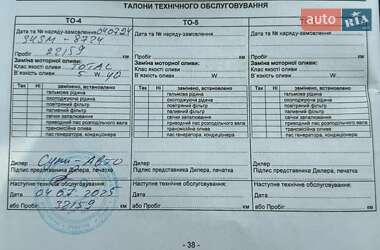 AUTO RIA
ТАЛОНИ ТЕХНІЧНОГО ОБСЛУГОВУВАННЯ
ТО-4
ТО-5
Дата та № наряду-замовлення 040724
Дата та № наряду-замовлення
Дата та №
SHSM - 8724
Пробіг 22159 км
Пробіг км
Пробіг
Заміна моторної оливи:
Заміна моторної оливи:
Заміна моторної оливи:
Клас якості оливи TOTAL
Клас якості оливи
Клас якості оливи
В'язкість оливи 5 W 40
В'язкість оливи W
В'язкість оливи W
Так Ні замінено, встановлено
Так Ні замінено, встановлено
Так Ні замінено, встановлено
гальмова рідина
гальмова рідина
гальмова рідина
охолоджуюча рідина
охолоджуюча рідина
охолоджуюча рідина
повітряний фільтр
повітряний фільтр
повітряний фільтр
паливний фільтр
паливний фільтр
паливний фільтр
свічки запалювання
свічки запалювання
свічки запалювання
приводний пас розподільного вала
приводний пас розподільного вала
приводний пас розподільного вала
трансмісійна олива
трансмісійна олива
трансмісійна олива
пас генератора, кондиціонера
пас генератора, кондиціонера
пас генератора, кондиціонера
Дилер Суми-Авто
Дилер
Дилер
Підпис представника Дилера, печатка
Підпис представника Дилера, печатка
Підпис представника Дилера, печатка
Наступне технічне обслуговування:
Наступне технічне обслуговування:
Наступне технічне обслуговування:
Дата 04 07 2025
Дата
Дата
або Пробіг 32159 км
або Пробіг км
або Пробіг км
- 38 -